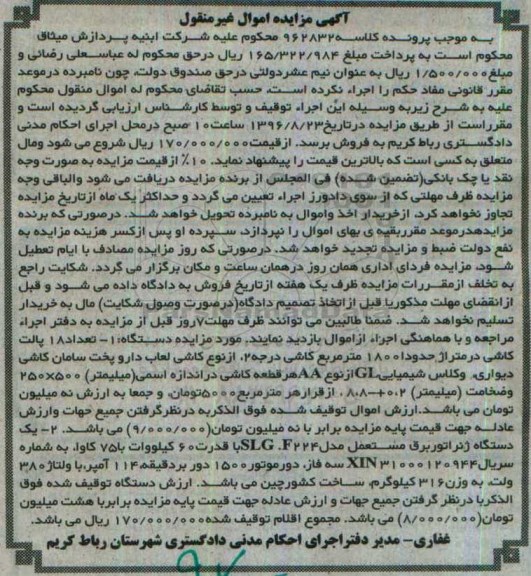 آگهی مزایده اموال غیرمنقول
به موجب پرونده کلاسه۹۶۲۸۳۲ محکوم علیه شرکت ابنیه پردازش میثاق
محکوم است به پرداخت مبلغ ۱۶۵/۳۲۲/۹۸۴ ریال درحق محکوم له عباسعلی رضائی و
مبلغ۱/۵۰۰/۰۰۰ ریال به عنوان نیم عشردولتی درحق صندوق دولت، چون نامبرده درموعد
مقرر قانونی مفاد حکم را اجراء نکرده است، حسب تقاضای محکوم له اموال منقول محکوم
علیه به شرح زیربه وسیله این اجراء توقیف و توسط کارشناس ارزیابی گردیده است و
مقرراست از طریق مزایده درتاریخ۱۳۹۶/۸/۲۳ ساعت۱۰ صبح درمحل اجرای احکام مدنی
دادگستری رباط کریم به فروش برسد. ازقیمت۱۷۰/۰۰۰/۰۰۰ ریال شروع می شود ومال
متعلق به کسی است که بالاترین قیمت را پیشنهاد نماید. ۱۰٪ ازقیمت مزایده به صورت وجه
نقد یا چک بانکی(تضمین شده) فی المجلس از برنده مزایده دریافت می شود والباقی وجه
مزایده ظرف مهلتی که از سوی دادورز اجراء تعیین می گردد و حداکثر یک ماه ازتاریخ مزایده
تجاوز نخواهد کرد، ازخریدار اخذ واموال به نامبرده تحویل خواهد شد. درصورتی که برنده
مزایدهدرموعد مقرربقیه ی بهای اموال را نپردازد، سپرده او پس ازکسر هزینه مزایده به
نفع دولت ضبط و مزایده تجدید خواهد شد. درصورتی که روز مزایده مصادف با ایام تعطیل
شود، مزایده فردای آداری همان روز درهمان ساعت و مکان برگزار می گردد. شکایت راجع
به تخلف ازمقررات مزایده ظرف یک هفته ازتاریخ فروش به دادگاه داده می شود و قبل
ازانقضای مهلت مذکوریا قبل ازاتخاذ تصمیم دادگاه(درصورت وصول شکایت) مال به خریدار
تسلیم نخواهد شد. ضمنا طالبین می توانند ظرف مهلت۷روز قبل از مزایده به دفتر اجراء
مراجعه و با هماهنگی اجراء ازاموال بازدید نمایند. مورد مزایده دستگاه:۱- تعداد۱۸ پالت
کاشی درمتراژ حدودا۱۸۰۰ مترمربع کاشی درجه۲، ازنوع کاشی لعاب دارو پخت سامان کاشی
دیواری، وکلاس شیمیاییGLازنوعAAهرقطعه کاشی دراندازه اسمی(میلیمتر) ۵۰۰×۲۵۰
وضخامت (میلیمتر) ۰.۲+-۸.۸، ازقرارهر مترمربع۵۰۰۰تومان، و جمعا به ارزش نه میلیون
تومان می باشد.ارزش اموال توقیف شده فوق الذکربه درنظرگرفتن جمیع جهات وارزش
عادله جهت قیمت پایه مزایده برابر با نه میلیون تومان(۹/۰۰۰/۰۰۰) می باشد. ۲- یک
دستگاه ژنراتوربرق مستعمل مدلSLG .F۲۲۴با قدرت۶۰ کیلووات یا۷۵ کاوا، به شماره
سریالXIN۳۱۰۰۰۱۲۰۹۴۴ سه فاز، دورموتور۱۵۰۰ دور بردقیقه،۱۱۴ آمپر،با ولتاژ۳۸۰
ولت، به وزن۳۱۶ کیلوگرم، ساخت کشورچین می باشد. ارزش دستگاه توقیف شده فوق
الذکربا درنظر گرفتن جمیع جهات و ارزش عادله جهت قیمت پایه مزایده برابربا هشت میلیون
تومان(۸/۰۰۰/۰۰۰) می باشد. مجموع اقلام توقیف شده۱۷۰/۰۰۰/۰۰۰ ریال می باشد.
غفاری- مدیر دفتراجرای احکام مدنی دادگستری شهرستان رباط کریم